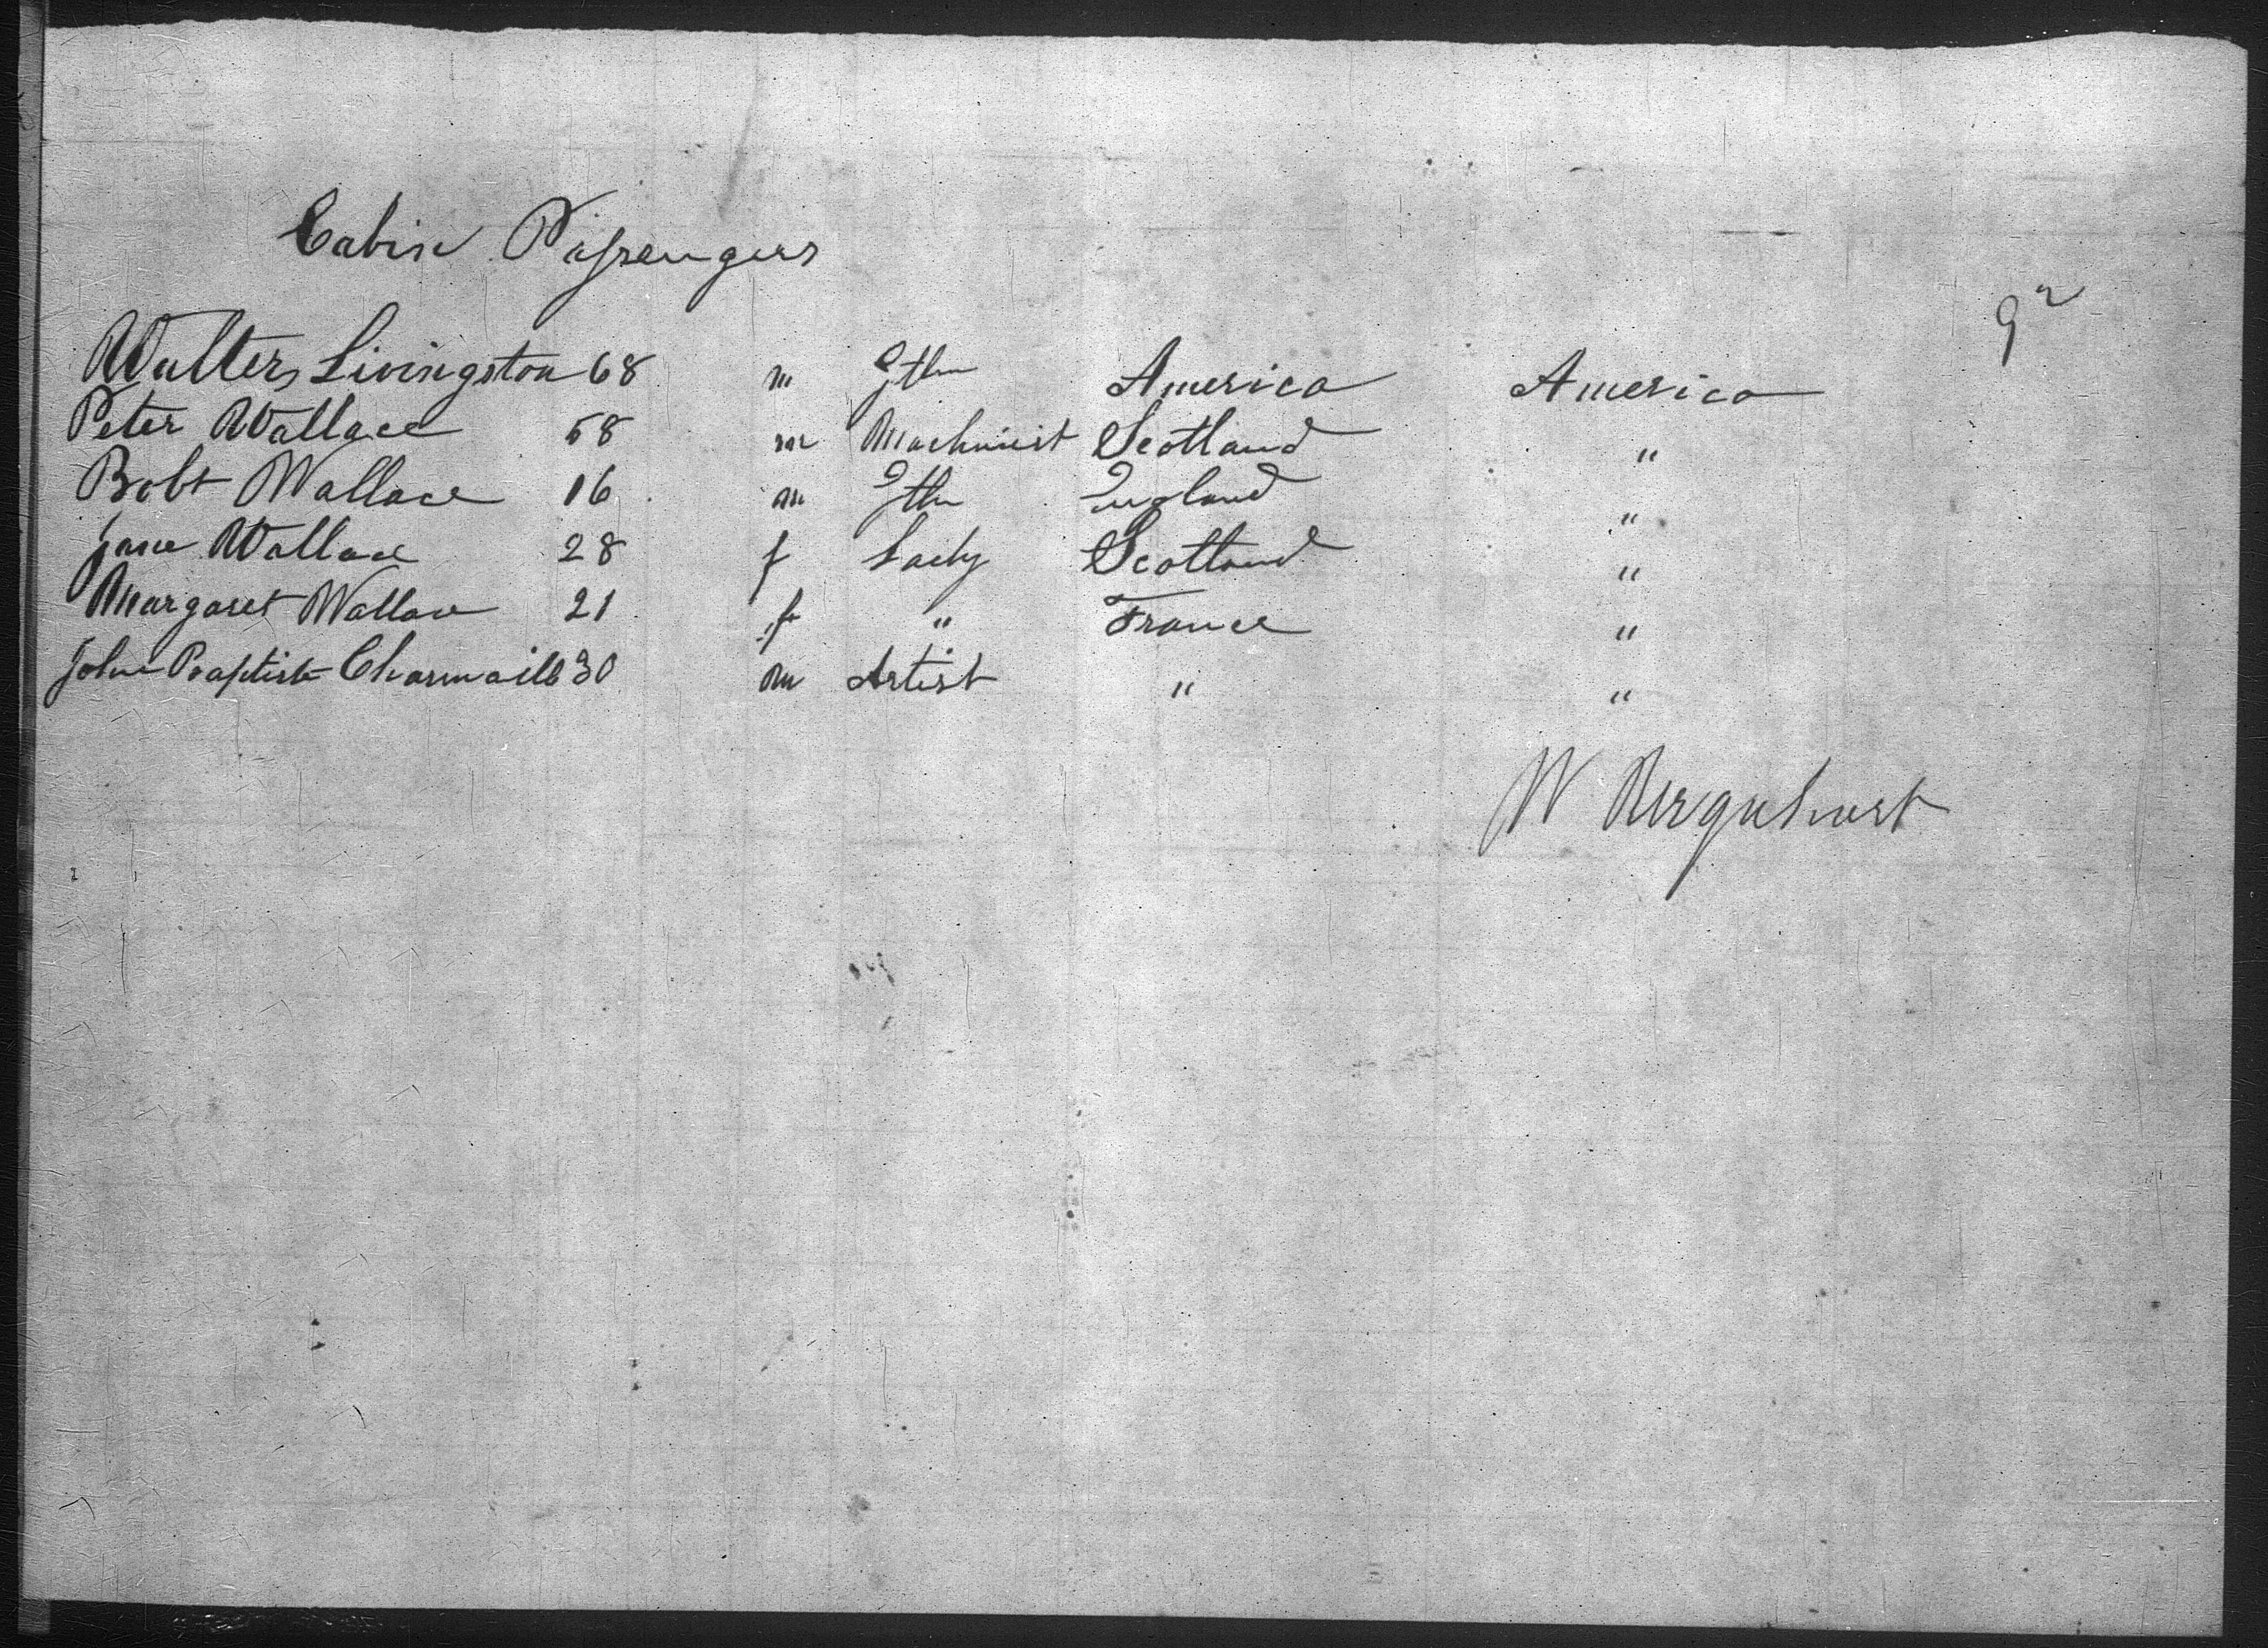 Cabin Passengers
92
Walter Livingston 68 m Gtln America America
Peter Wallace 58 m Machinist Scotland "
Robt Wallace 16 m Gtln England "
Jane Wallace 28 f Lady Scotland "
Margaret Wallace 21 f " France "
John Baptist 30 m Artist " "
W Urquhart